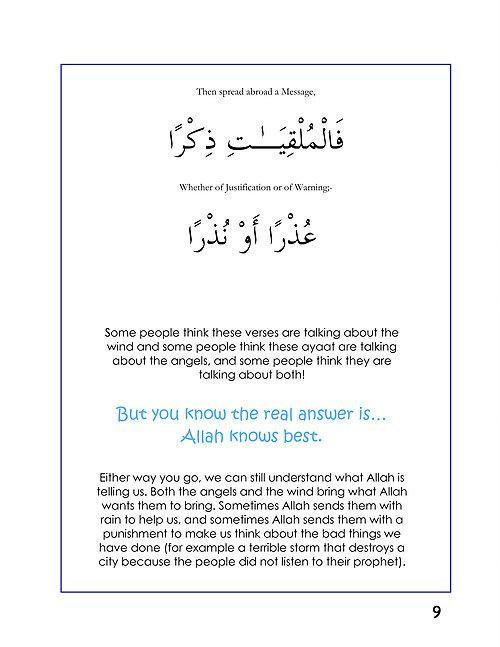 Then spread abroad a Message,
فَالْمُلْقِيَـٰتِ ذِكْرًا
Whether of Justification or of Warning;-
عُذْرًا أَوْ نُذْرًا
Some people think these verses are talking about the
wind and some people think these ayaat are talking
about the angels, and some people think they are
talking about both!
But you know the real answer is…
Allah knows best.
Either way you go, we can still understand what Allah is
telling us. Both the angels and the wind bring what Allah
wants them to bring. Sometimes Allah sends them with
rain to help us, and sometimes Allah sends them with a
punishment to make us think about the bad things we
have done (for example a terrible storm that destroys a
city because the people did not listen to their prophet).
9